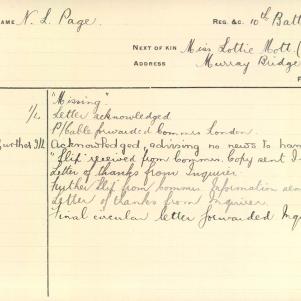 NAME N. L. Page. REG. &C. 10th Batt
NEXT OF KIN Miss Lottie Mott (
ADDRESS Murray Bridge
"Missing"
Letter acknowledged
P/Cable forwarded Commrs London.
Acknowledged, advising no news to han
"Slip" received from Commrs. Copy sent I
Letter of thanks from Inquirer.
Further slip from Commrs Information sen
Letter of thanks from Inquirer.
Final circular letter forwarded Inq